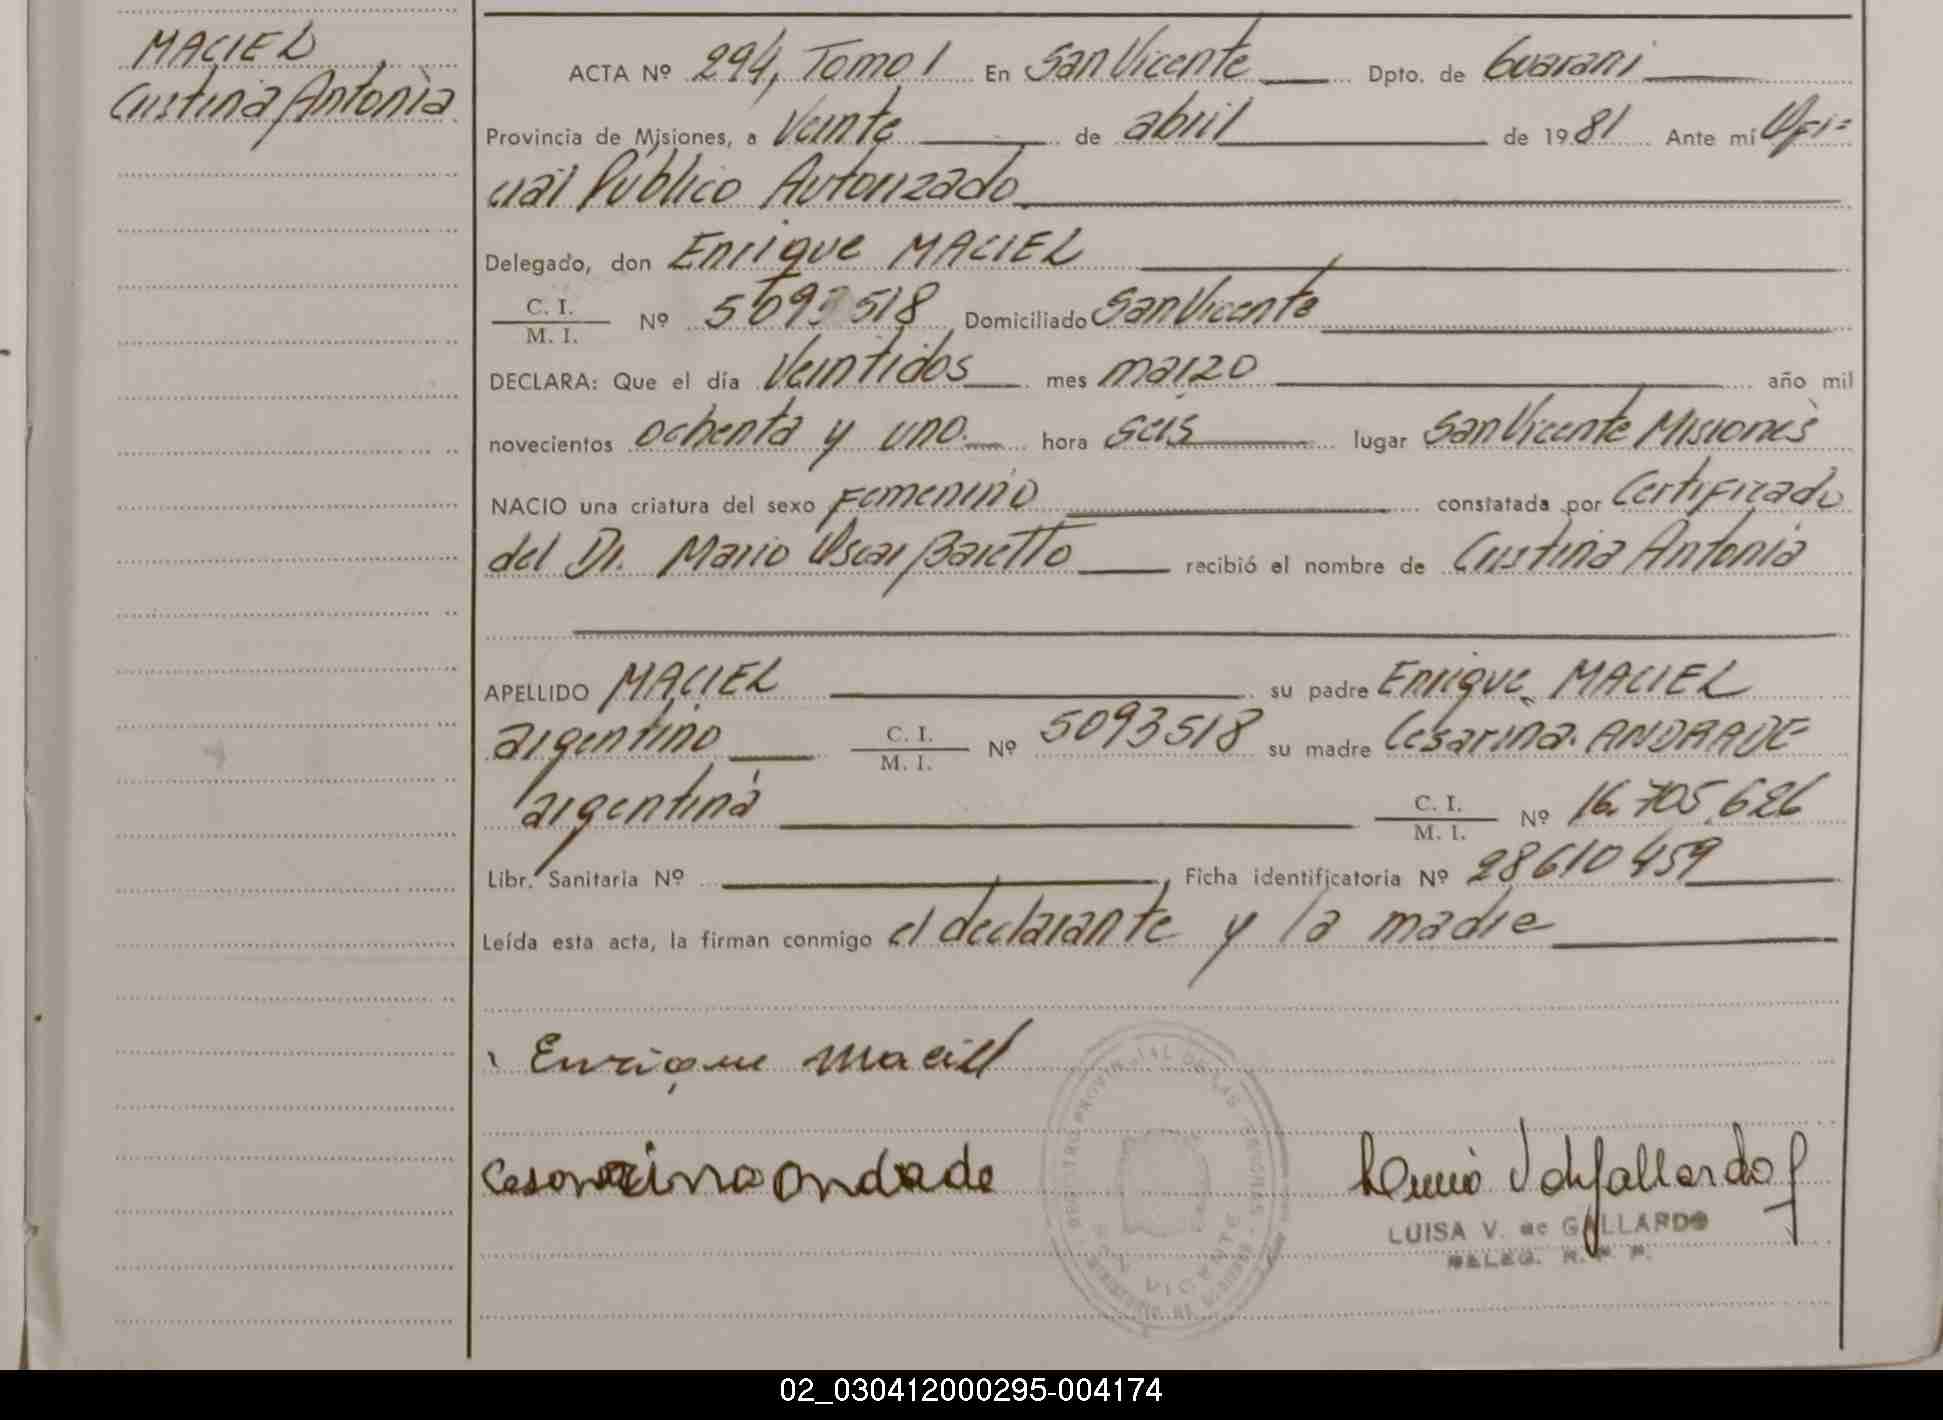 MACIEL
Cristina Antonia
ACTA Nº 294, Tomo I En San Vicente Dpto. de Guaraní
Provincia de Misiones, a Veinte de abril de 1981 Ante mí Ofi=
cial Público Autorizado
Delegado, don Enrique MACIEL
C. I.
M. I.
Nº 5093518, Domiciliado San Vicente
DECLARA: Que el día Veintidos mes marzo año mil
novecientos ochenta y uno hora seis lugar San Vicente Misiones
NACIO una criatura del sexo Femenino constatada por Certificado
del Dr. Mario Oscar Baretto recibió el nombre de Cristina Antonia
APELLIDO MACIEL su padre Enrique MACIEL
argentino C. I.
M. I.
Nº 5093518 su madre Cesarina ANDRADE
argentina C. I.
M. I.
Nº 16.705.626
Libr. Sanitaria Nº , Ficha identificatoria Nº 28610459
Leída esta acta, la firman conmigo el declarante y la madre
Enrique Maciel
Cesarina Andrade
LUISA V. de GALLARDO
DELEG. R. P. P.
SAN VICENTE
02_030412000295-004174